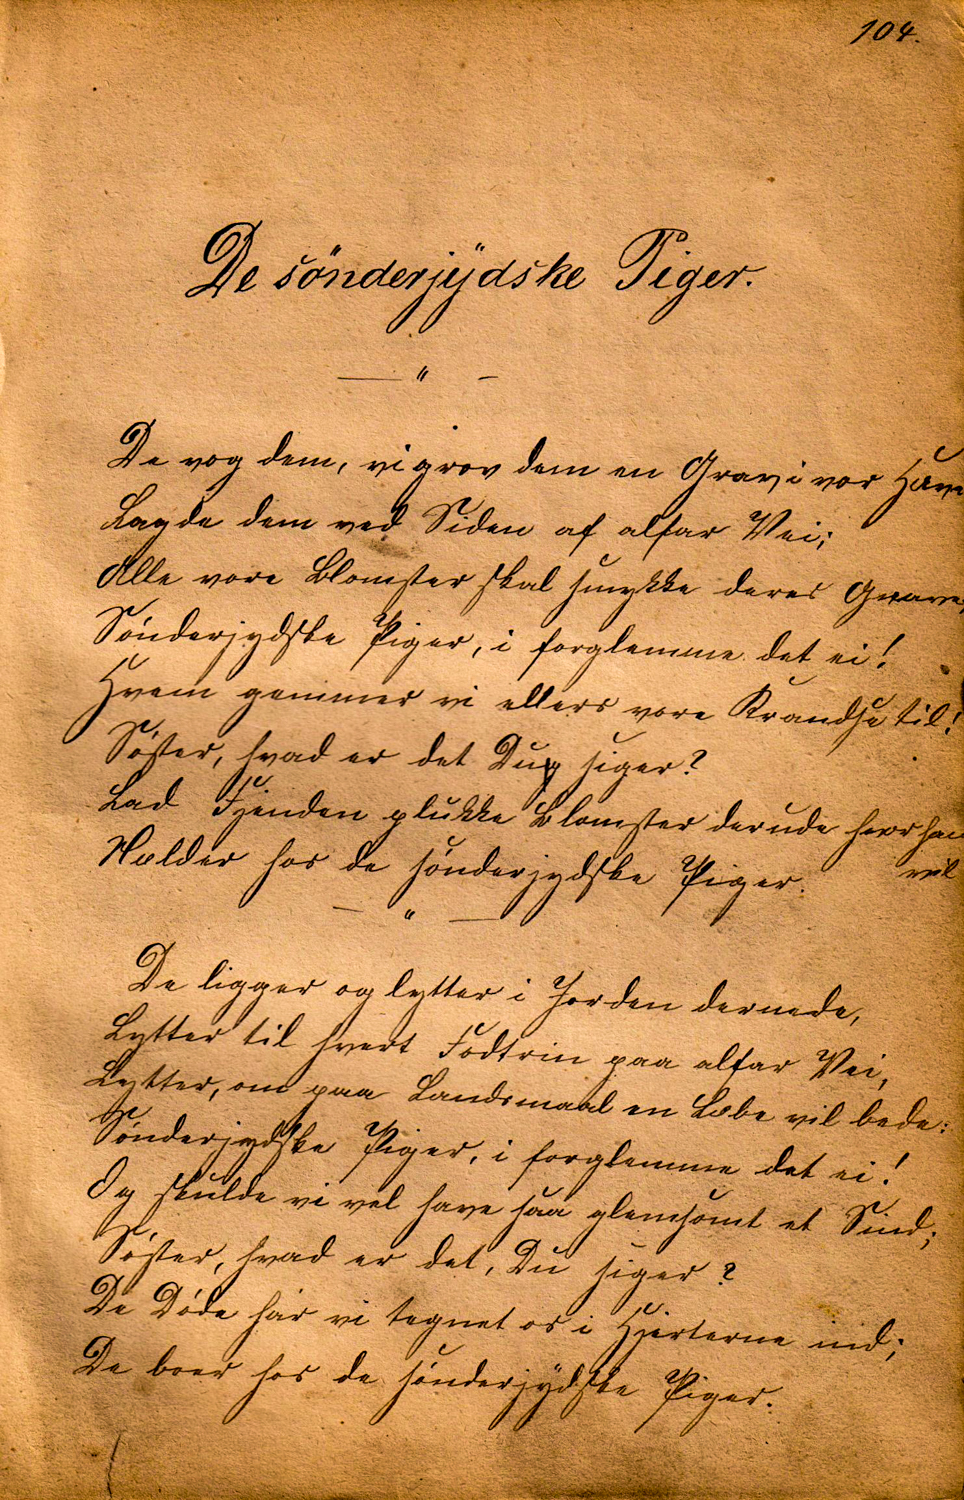 104.
De sönderjÿdske Piger.
De vog dem, vi grov dem en Grav i vor Have
Lagde dem ved Siden af alfar Vei;
Alle vore Blomster skal smykke deres Grave,
Sönderjydske Piger, i forglemme det ei!
Hvem gemmer vi ellers vore Krandse til!
Söster, hvad er det Du siger?
Lad Fjenden plukke Blomster derude hvor han
vil
Nælder hos de sönderjydske Piger.
De ligger og lytter i Jorden dernede,
Lytter til hvert Fodtrin paa alfar Vei,
Lytter, om paa Landsmaal en Læbe vil bede:
Sönderjydske Piger, i forglemme det ei!
Og skulde vi vel have saa glemsomt et Sind;
Söster, hvad er det, Du siger?
De Döde har vi tegnet os i Hjerterne ind;
De boer hos de sönderjÿdske Piger.